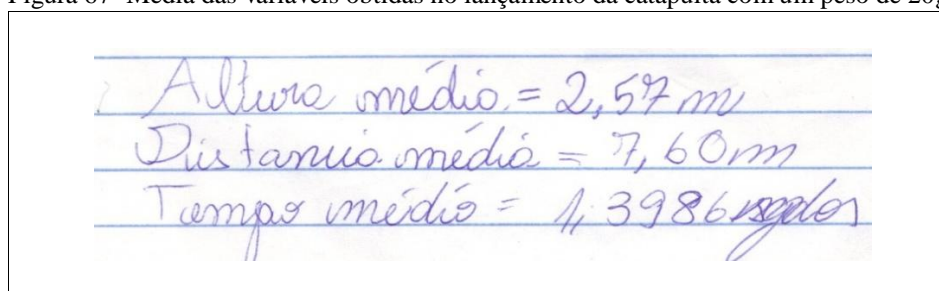 Figura 67- Média das variáveis obtidas no lançamento da catapulta com um peso de 20g
Altura médio = 2,57 m
Distancia média = 7,60m
Tempo médio = 1,3986